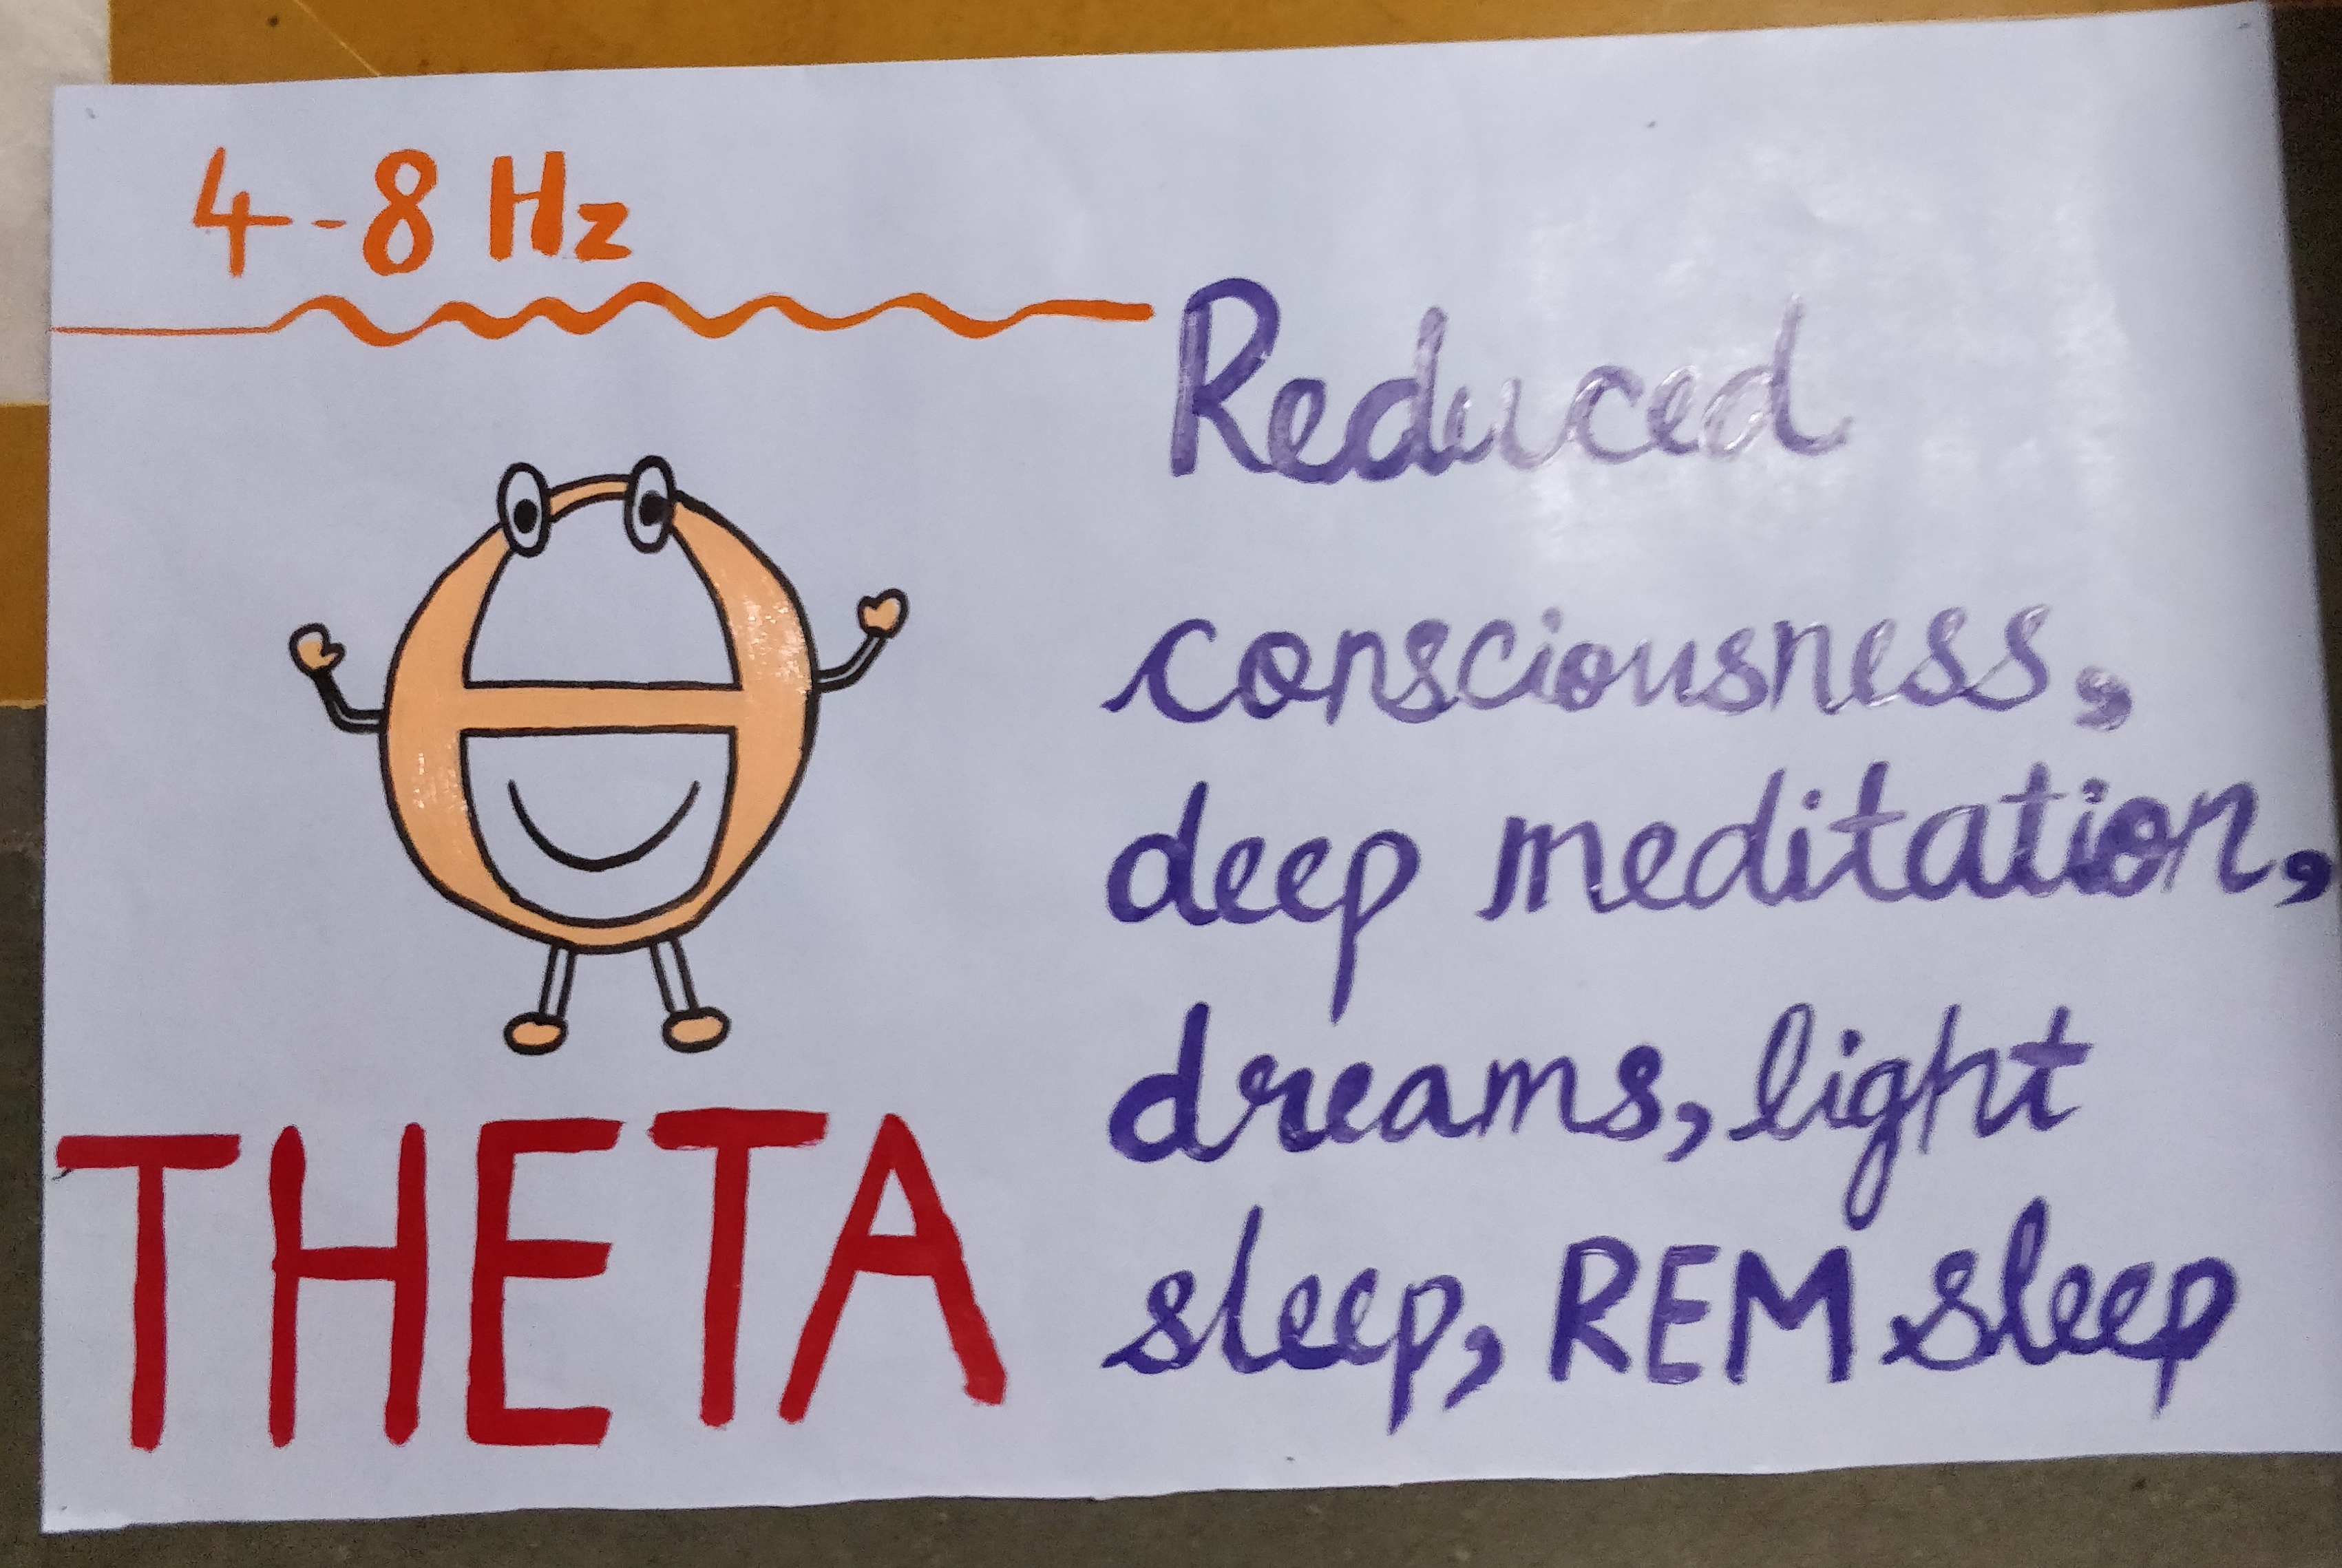 4-8 Hz
Reduced
consciousness,
deep meditation,
dreams, light
sleep, REM sleep
THETA